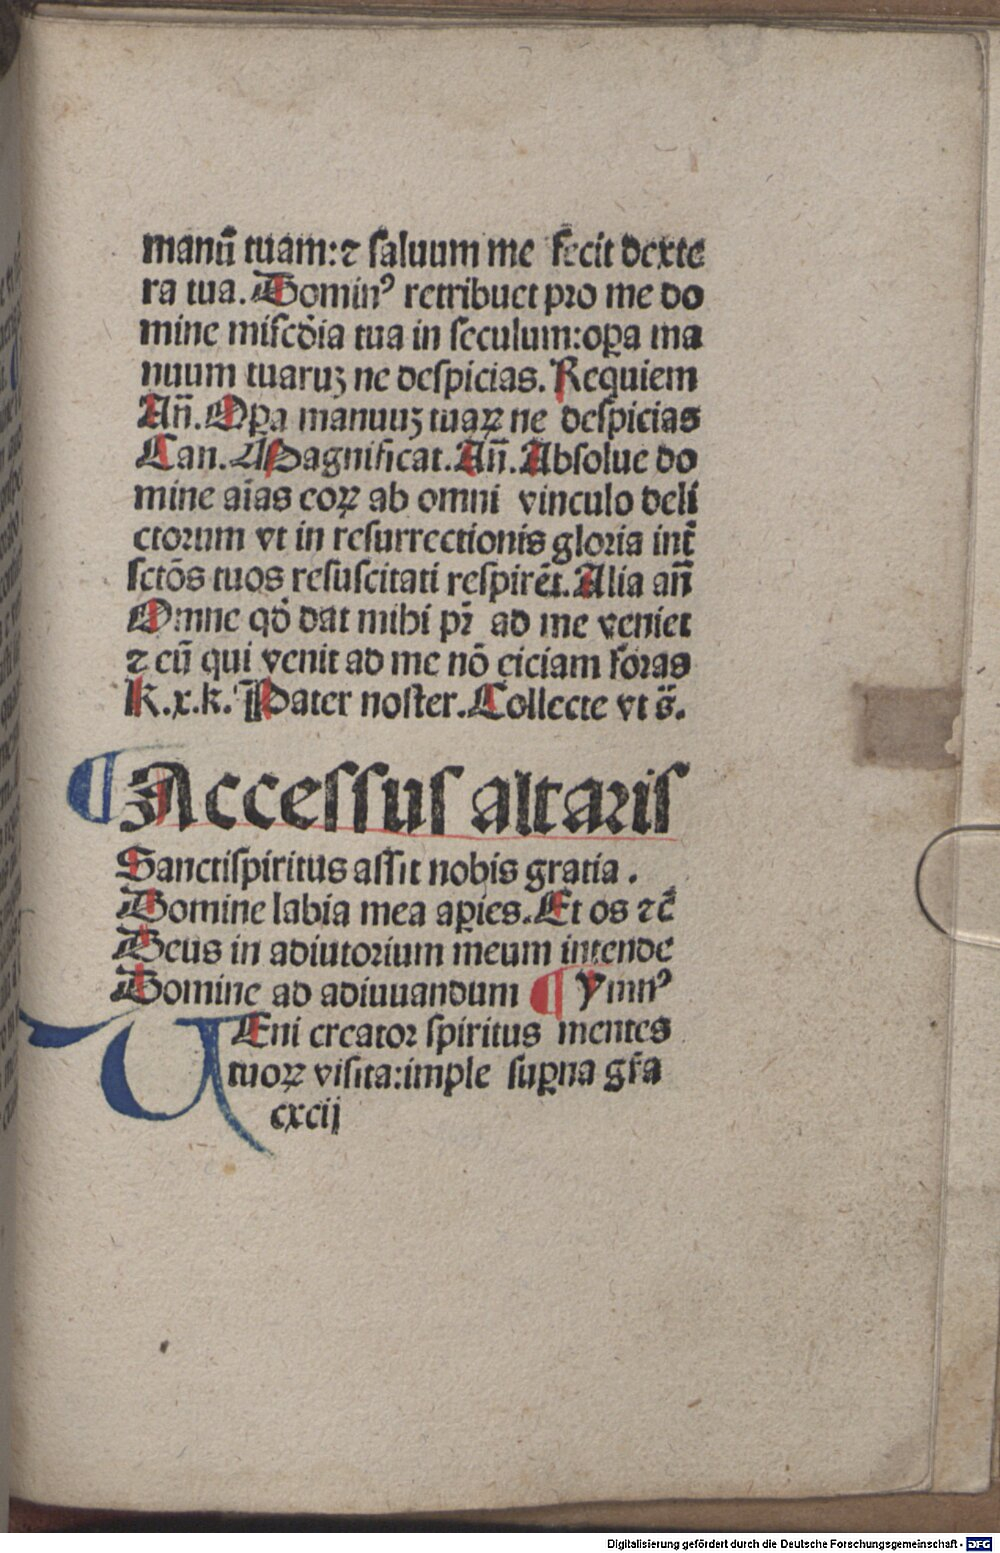 manū tuam: ⁊ ſaluum me fecit dexte
ra tua. Dominꝰ retribuet pro me do
mine miſcd̄ia tua in ſeculum: oꝑa ma
nuum tuaruꝫ ne deſpicias. Requiem
An̄. Oꝑa manuuꝫ tuaꝝ ne deſpicias
Can. Magnificat. An̄. Abſolue do
mine aīas coꝝ ab omni vinculo deli
ctorum vt in reſurrectionis gloria int̄
ſctōs tuos reſuſcitati reſpirēt. Alia an̄
Omne qd̄ dat mihi pr̄ ad me veniet
⁊ eū qui venit ad me nō eiciam foras
K.x.k. ¶ Pater noſter. Collecte vt s̄.
¶ Acceſſus altaris
Sanctiſpiritus aſſit nobis gratia.
Domine labia mea aꝑies. Et os ⁊c̄
Deus in adiutorium meum intende
Domine ad adiuuandum ¶ Ymnꝰ
VEni creator ſpiritus mentes
tuoꝝ viſita: imple ſuꝑna gr̄a
cxcij
Digitalisierung gefördert durch die Deutsche Forschungsgemeinschaft - DFG